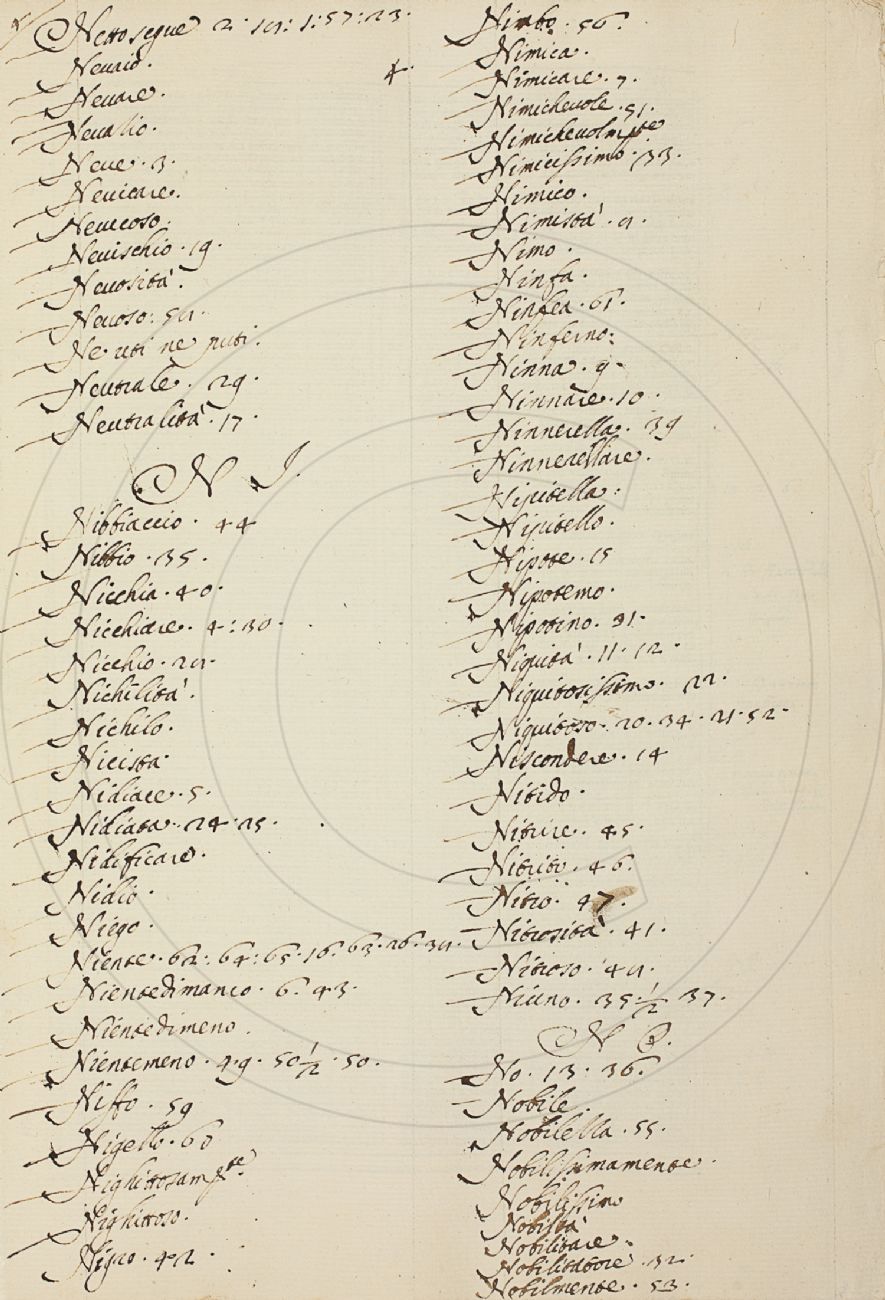 Netto segue 2: 19: 1: 57: 23.
Nevaio.
4.
Nevare.
Nevatio.
Neve. 3.
Nevicare.
Nevicoso.
Nevischio. 19.
Nevosità.
Nevoso: 54.
Ne uti ne puti.
Neutrale. 29.
Neutralità. 17.
N I.
Nibbiaccio. 44
Nibbio. 35.
Nicchia. 40.
Nicchiare. 4: 30.
Nicchio. 24.
Nichilità.
Nichilo.
Nicista.
Nidiace. 5.
Nidiata. 24. 25.
Nidificare.
Nidio.
Niego.
Niente. 62: 64: 65. 16. 63. 26. 34.
Nientedimanco. 6. 43.
Nientedimeno.
Nientemeno. 4. 9. 50 1/2. 50.
Niffo. 59
Nigello. 60
Nighittosamte.
Nighittoso.
Nigro. 42.
Nimbo. 56.
Nimica.
Nimicare. 7.
Nimichevole. 51.
Nimichevolmte
Nimicissimo. 33.
Nimico.
Nimistà. 9.
Nimo.
Ninfa.
Ninfea. 61.
Ninferno.
Ninna. 9.
Ninnare. 10.
Ninnerella. 39
Ninnerellare.
Nipitella.
Nipitello.
Nipote. 15
Nipotemo.
Nipotino. 31.
Niquità. 11. 12.
Niquitosissimo. 22.
Niquitoso. 20. 34. 21. 52.
Niscondere. 14
Nitido.
Nitrire. 45.
Nitrito. 46.
Nitro. 47.
Nitrosità. 41.
Nitroso. 49.
Niuno. 35. 1/2 37.
N O.
No. 13. 36.
Nobile.
Nobilella. 55.
Nobilissimamente.
Nobilissimo
Nobiltà
Nobilitare.
Nobilitatore. 32.
Nobilmente. 53.